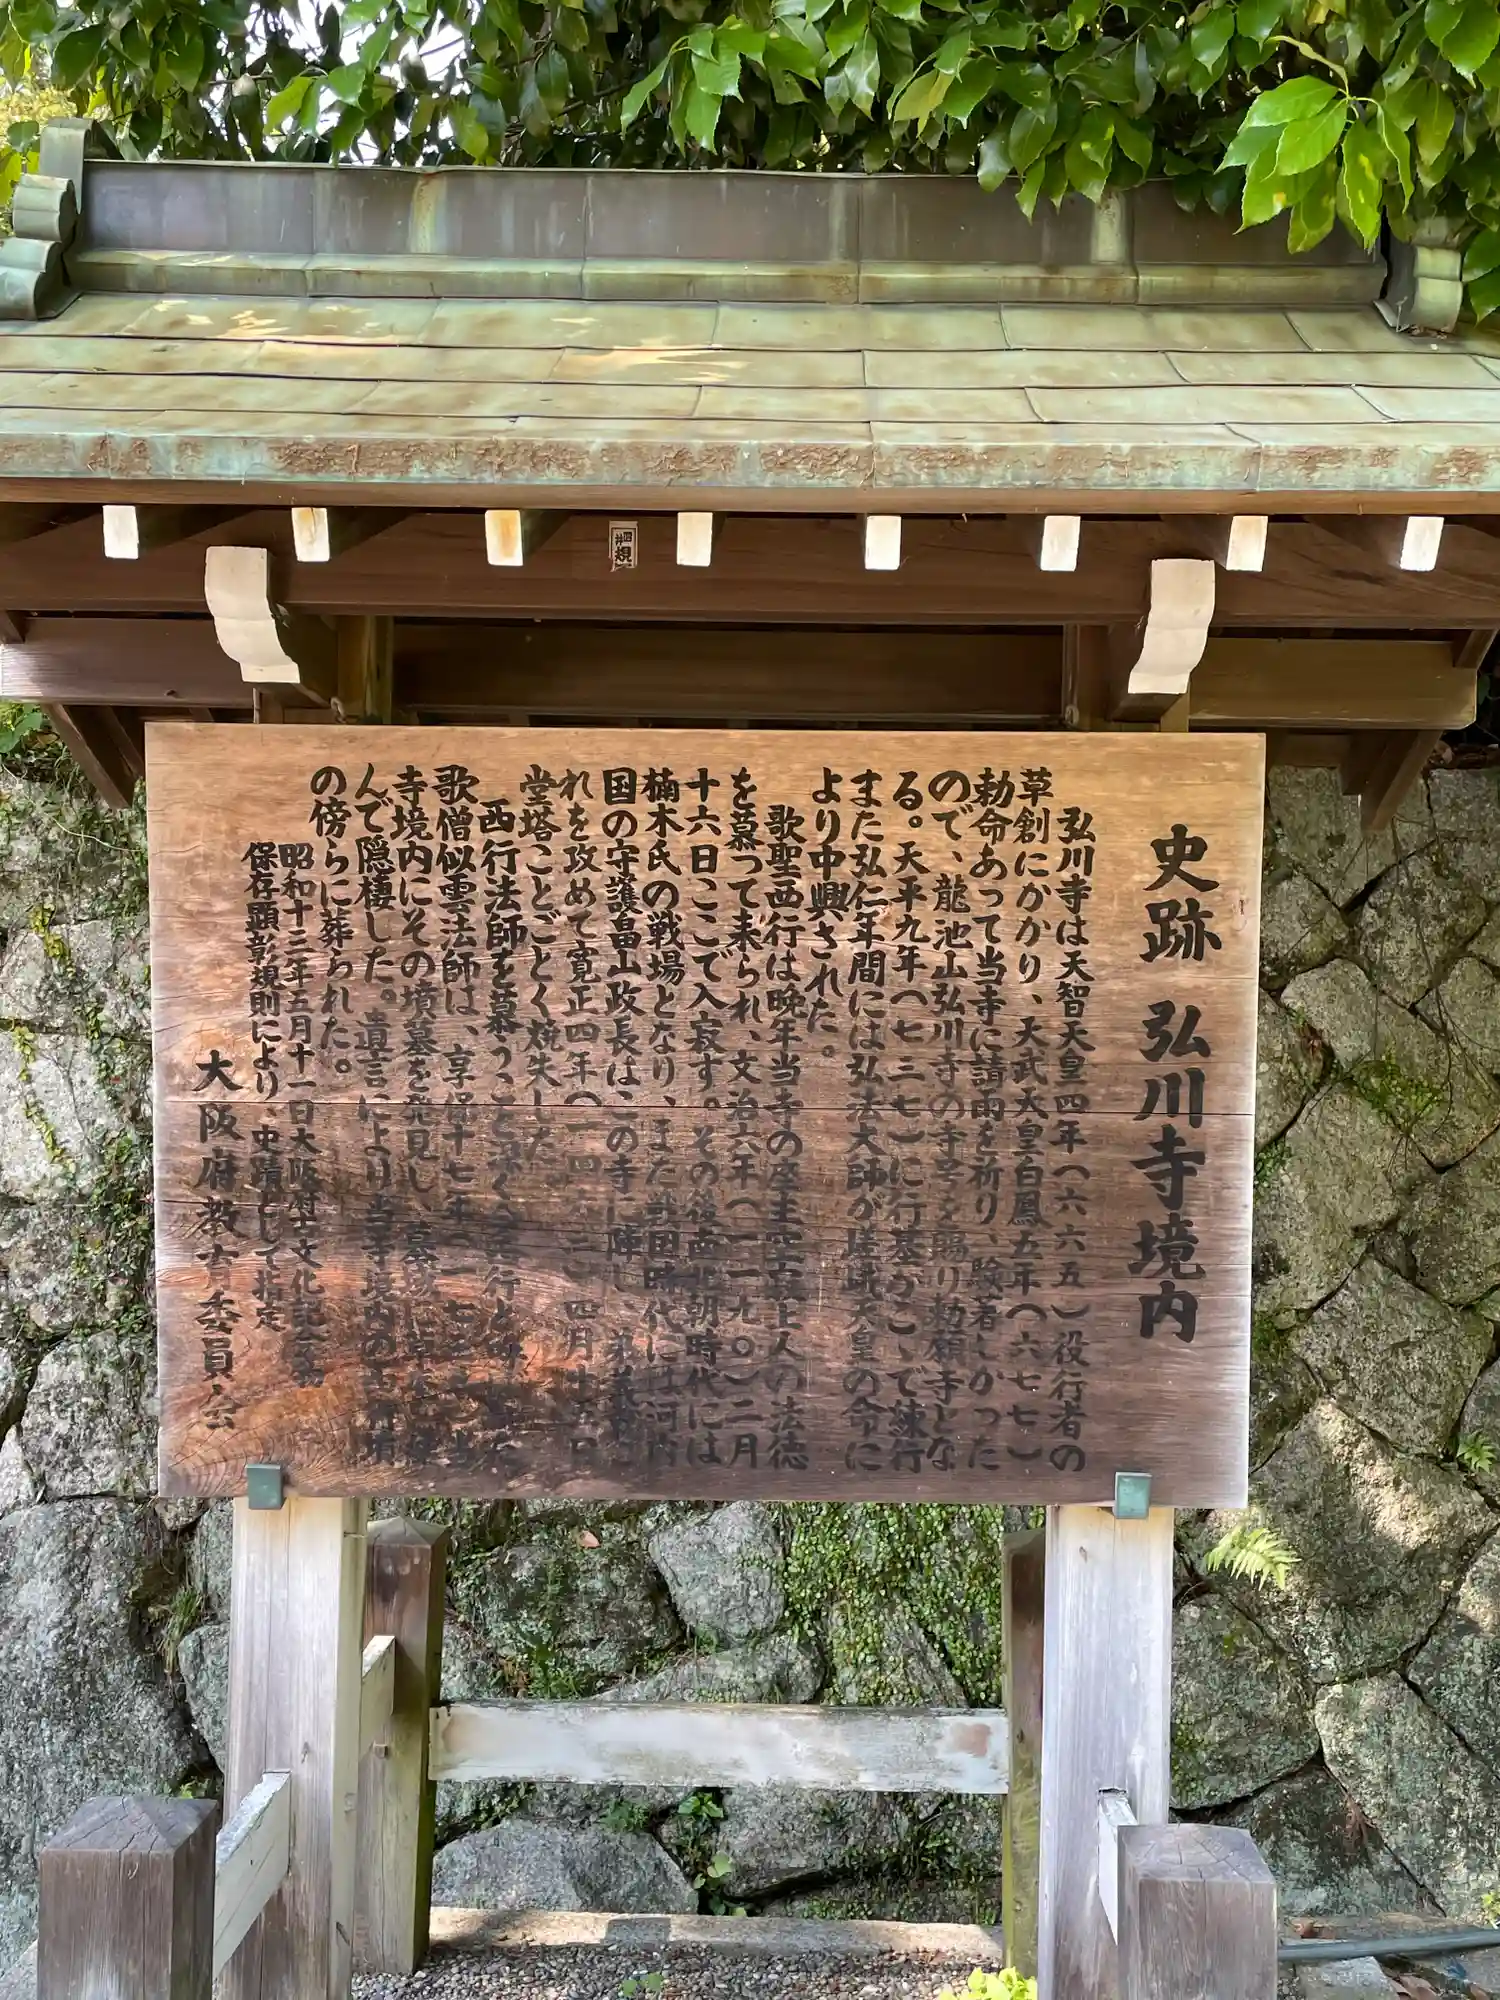 史跡 弘川寺境内
弘川寺は天智天皇四年(六六五)役行者の
草創にかかり、天武天皇白鳳五年(六七七)
勅命あって当寺に請雨を祈り、験者しかった
ので、龍池山弘川寺の寺号を賜り勅願寺とな
る。天平九年(七三七)に行基がこゝで練行
また弘仁年間には弘法大師が嵯峨天皇の命に
より中興された。
歌聖西行は晩年当寺の座主空寂上人の法徳
を慕って来られ、文治六年(一一九〇)二月
十六日ここで入寂す。その後南北朝時代には
楠木氏の戦場となり、また戦国時代には河内
国の守護畠山政長はこの寺に陣し、
れを攻めて寛正四年(一四六三)四月十五日
堂塔ことごとく焼失した。
西行法師を慕うこと深く
歌僧似雲法師は、享保十七年(一七三二)当
寺境内にその墳墓を発見し、墓域に
んで隠棲した。遺言により当寺境内の西行墳
の傍らに葬られた。
昭和十三年五月十一日大阪府古文化記念物
保存顕彰規則により、史蹟として指定
大阪府教育委員会